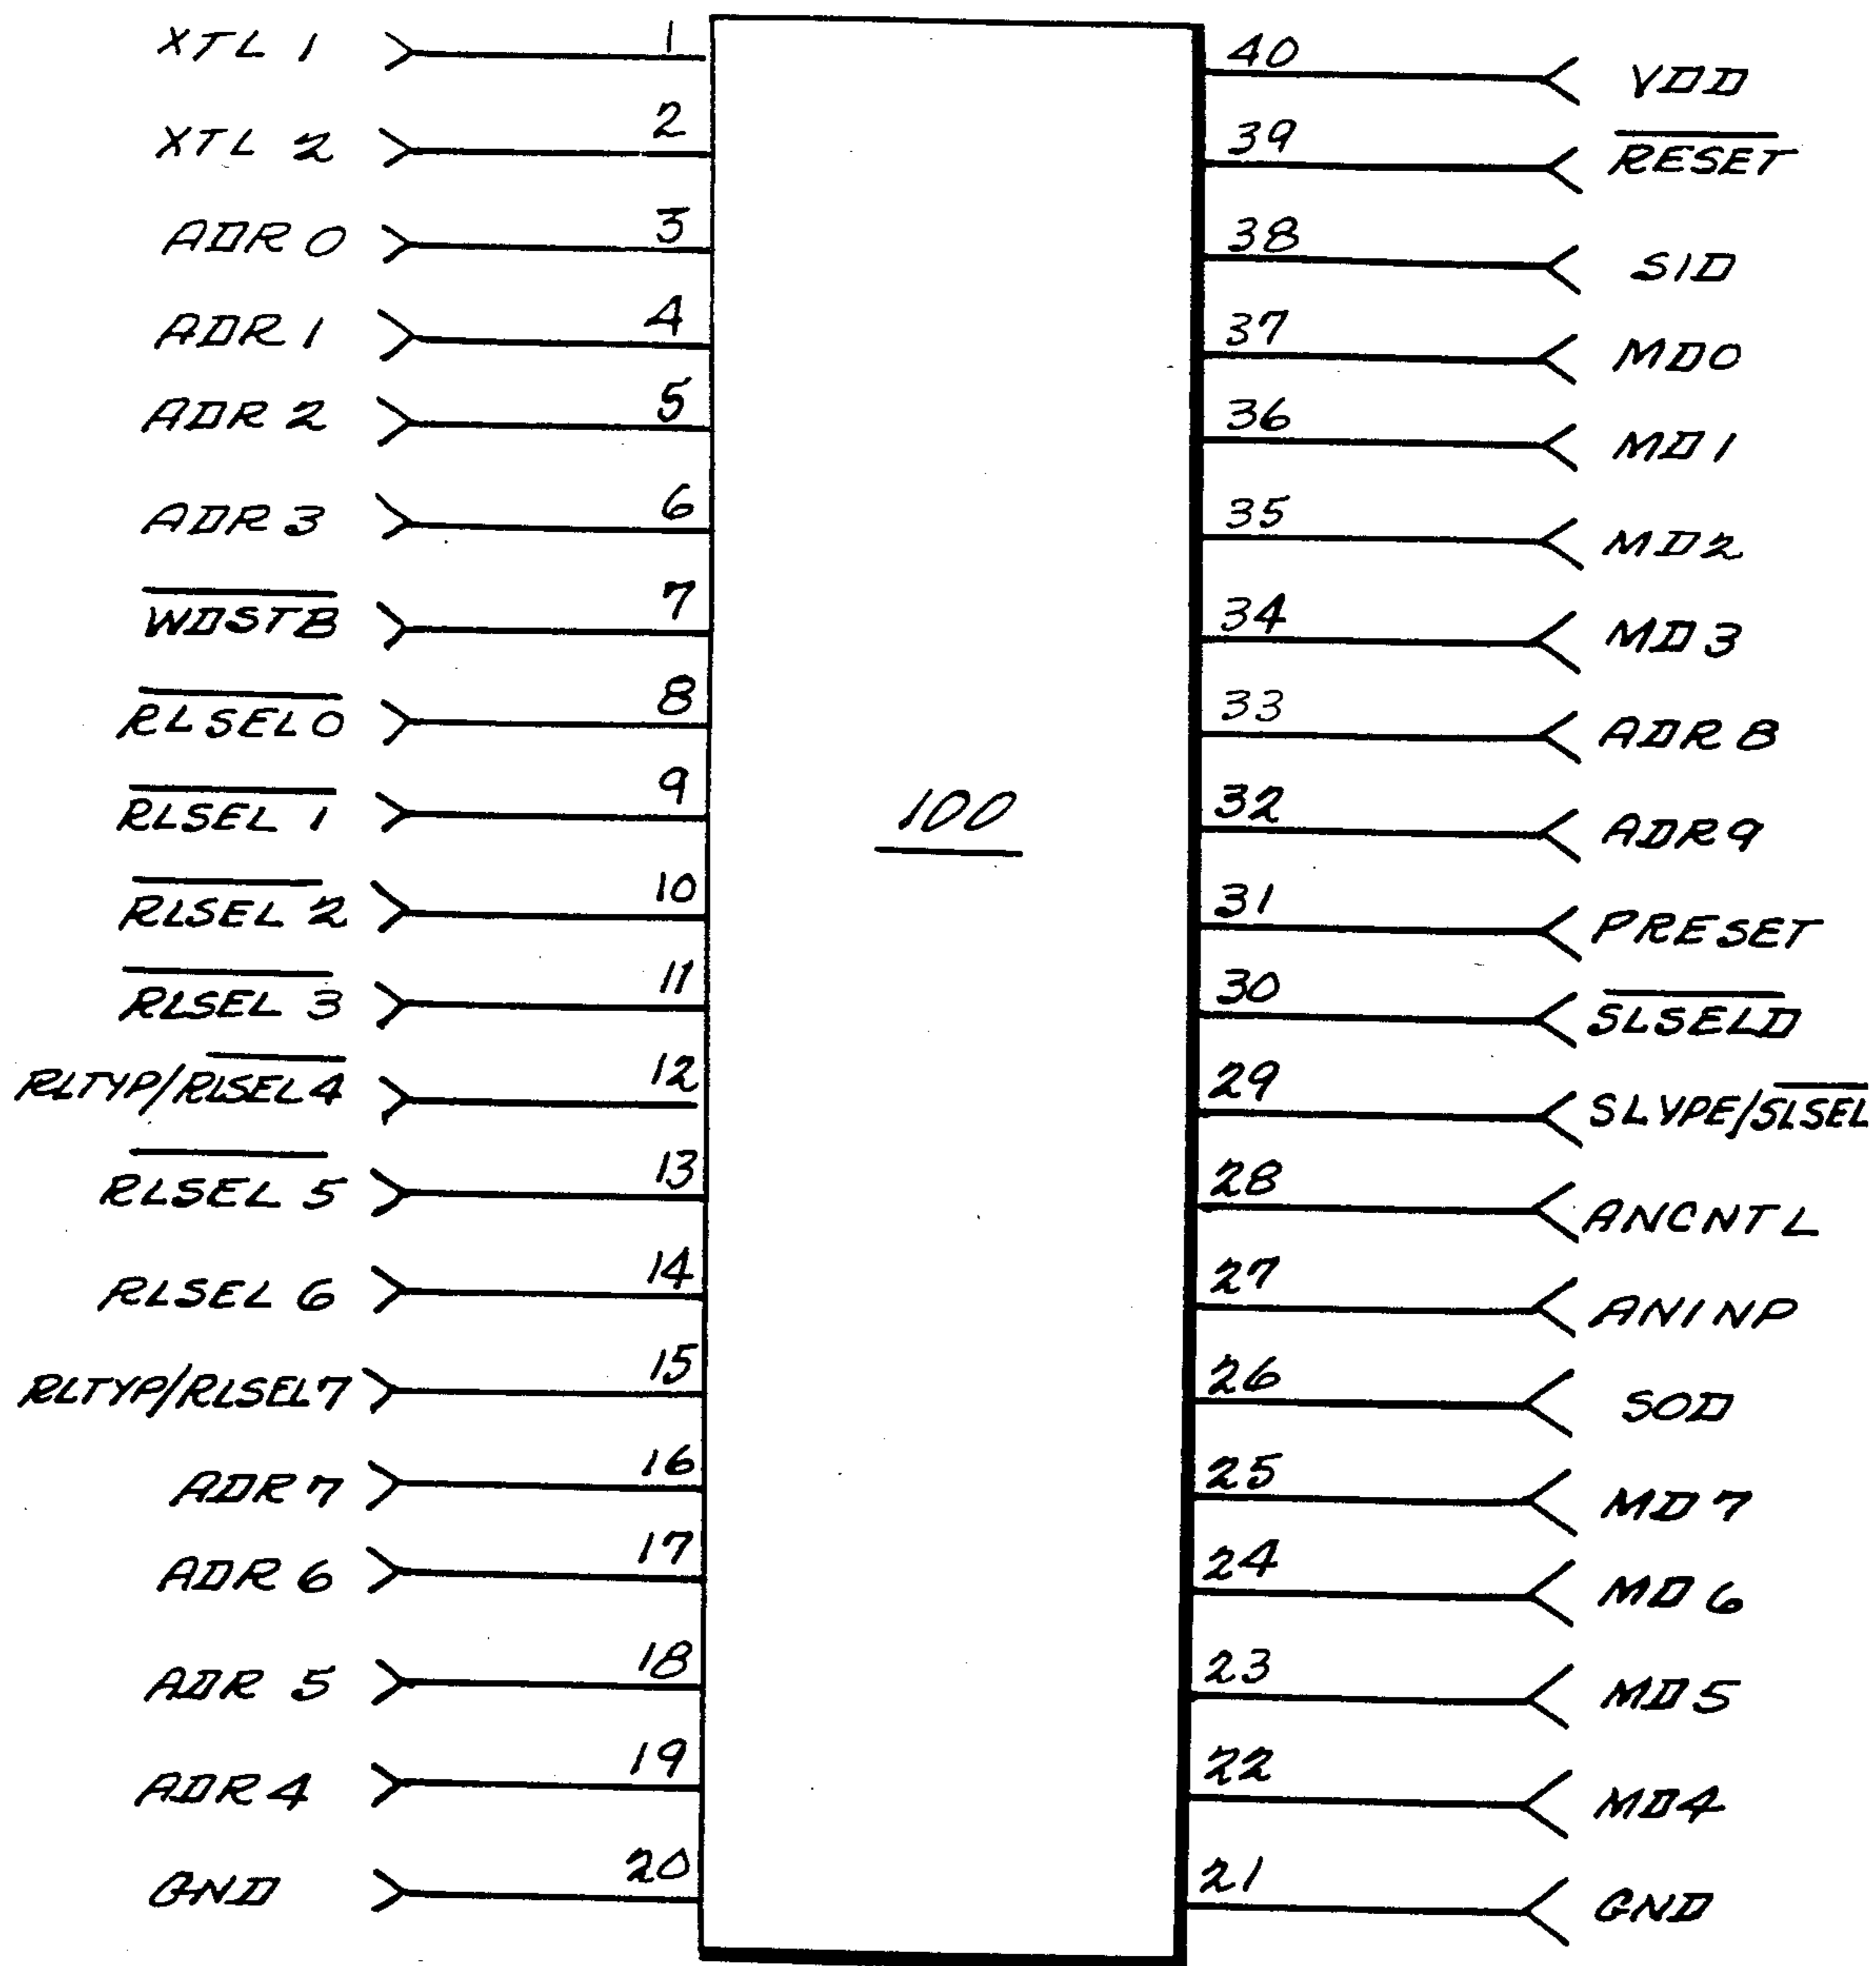 XTL 1 1
XTL 2 2
ADR 0 3
ADR 1 4
ADR 2 5
ADR 3 6
W̅D̅S̅T̅B̅ 7
R̅L̅S̅E̅L̅ 0̅ 8
R̅L̅S̅E̅L̅ 1̅ 9
R̅L̅S̅E̅L̅ 2̅ 10
R̅L̅S̅E̅L̅ 3̅ 11
RLTYP/R̅L̅S̅E̅L̅ 4̅ 12
R̅L̅S̅E̅L̅ 5̅ 13
RLSEL 6 14
RLTYP/RLSEL7 15
ADR 7 16
ADR 6 17
ADR 5 18
ADR 4 19
GND 20
100
40 VDD
39 R̅E̅S̅E̅T̅
38 SID
37 MD0
36 MD1
35 MD2
34 MD3
33 ADR 8
32 ADR 9
31 PRESET
30 S̅L̅S̅E̅L̅D̅
29 SLYPE/S̅L̅S̅E̅L̅
28 ANCNTL
27 ANINP
26 SOD
25 MD7
24 MD6
23 MD5
22 MD4
21 GND